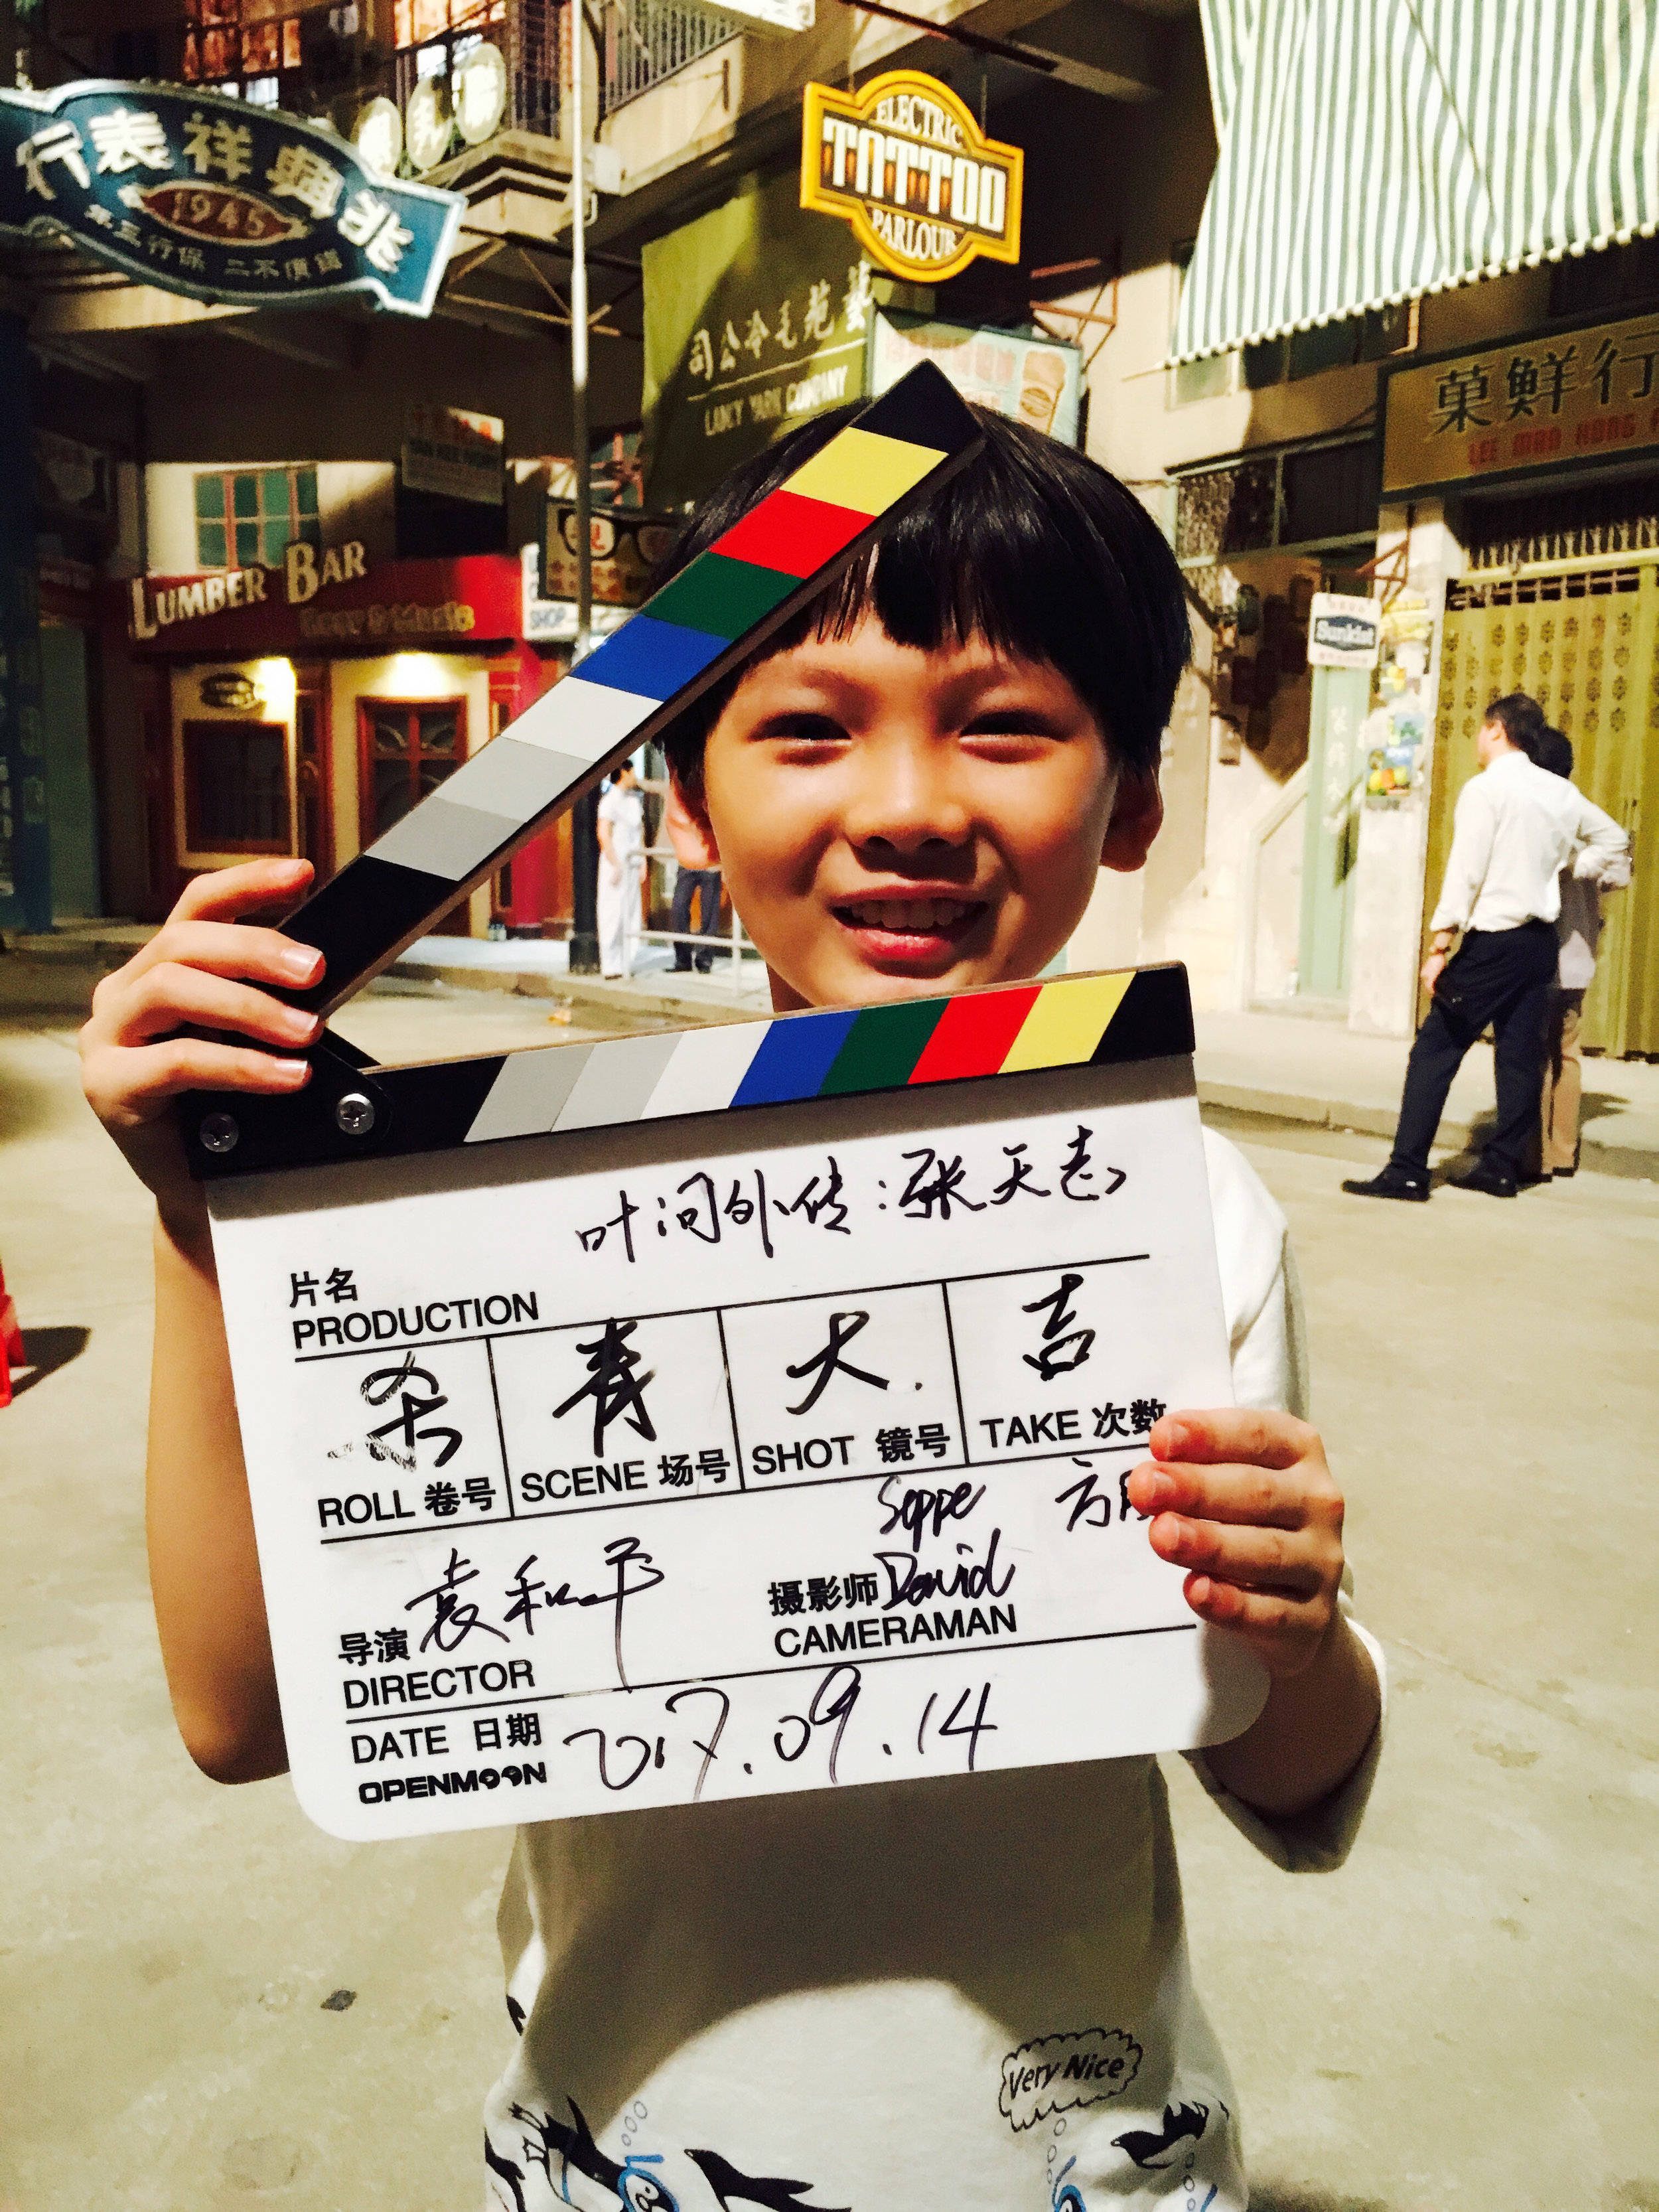 兆興祥表行
1945
第三行保 二不償錢
ELECTRIC
TATTOO
PARLOUR
藝苑毛冷公司
LANCY YARN COMPANY
菓鮮行
LEE MAN HONG
LUMBER BAR
SHOP
Sunkist
叶问外传:张天志
片名
PRODUCTION
杀 青 大. 吉
ROLL 卷号 SCENE 场号 SHOT 镜号 TAKE 次数
Seppe 方
导演 袁和平 摄影师 David
DIRECTOR CAMERAMAN
DATE 日期 2017.09.14
OPENMOON
Very Nice